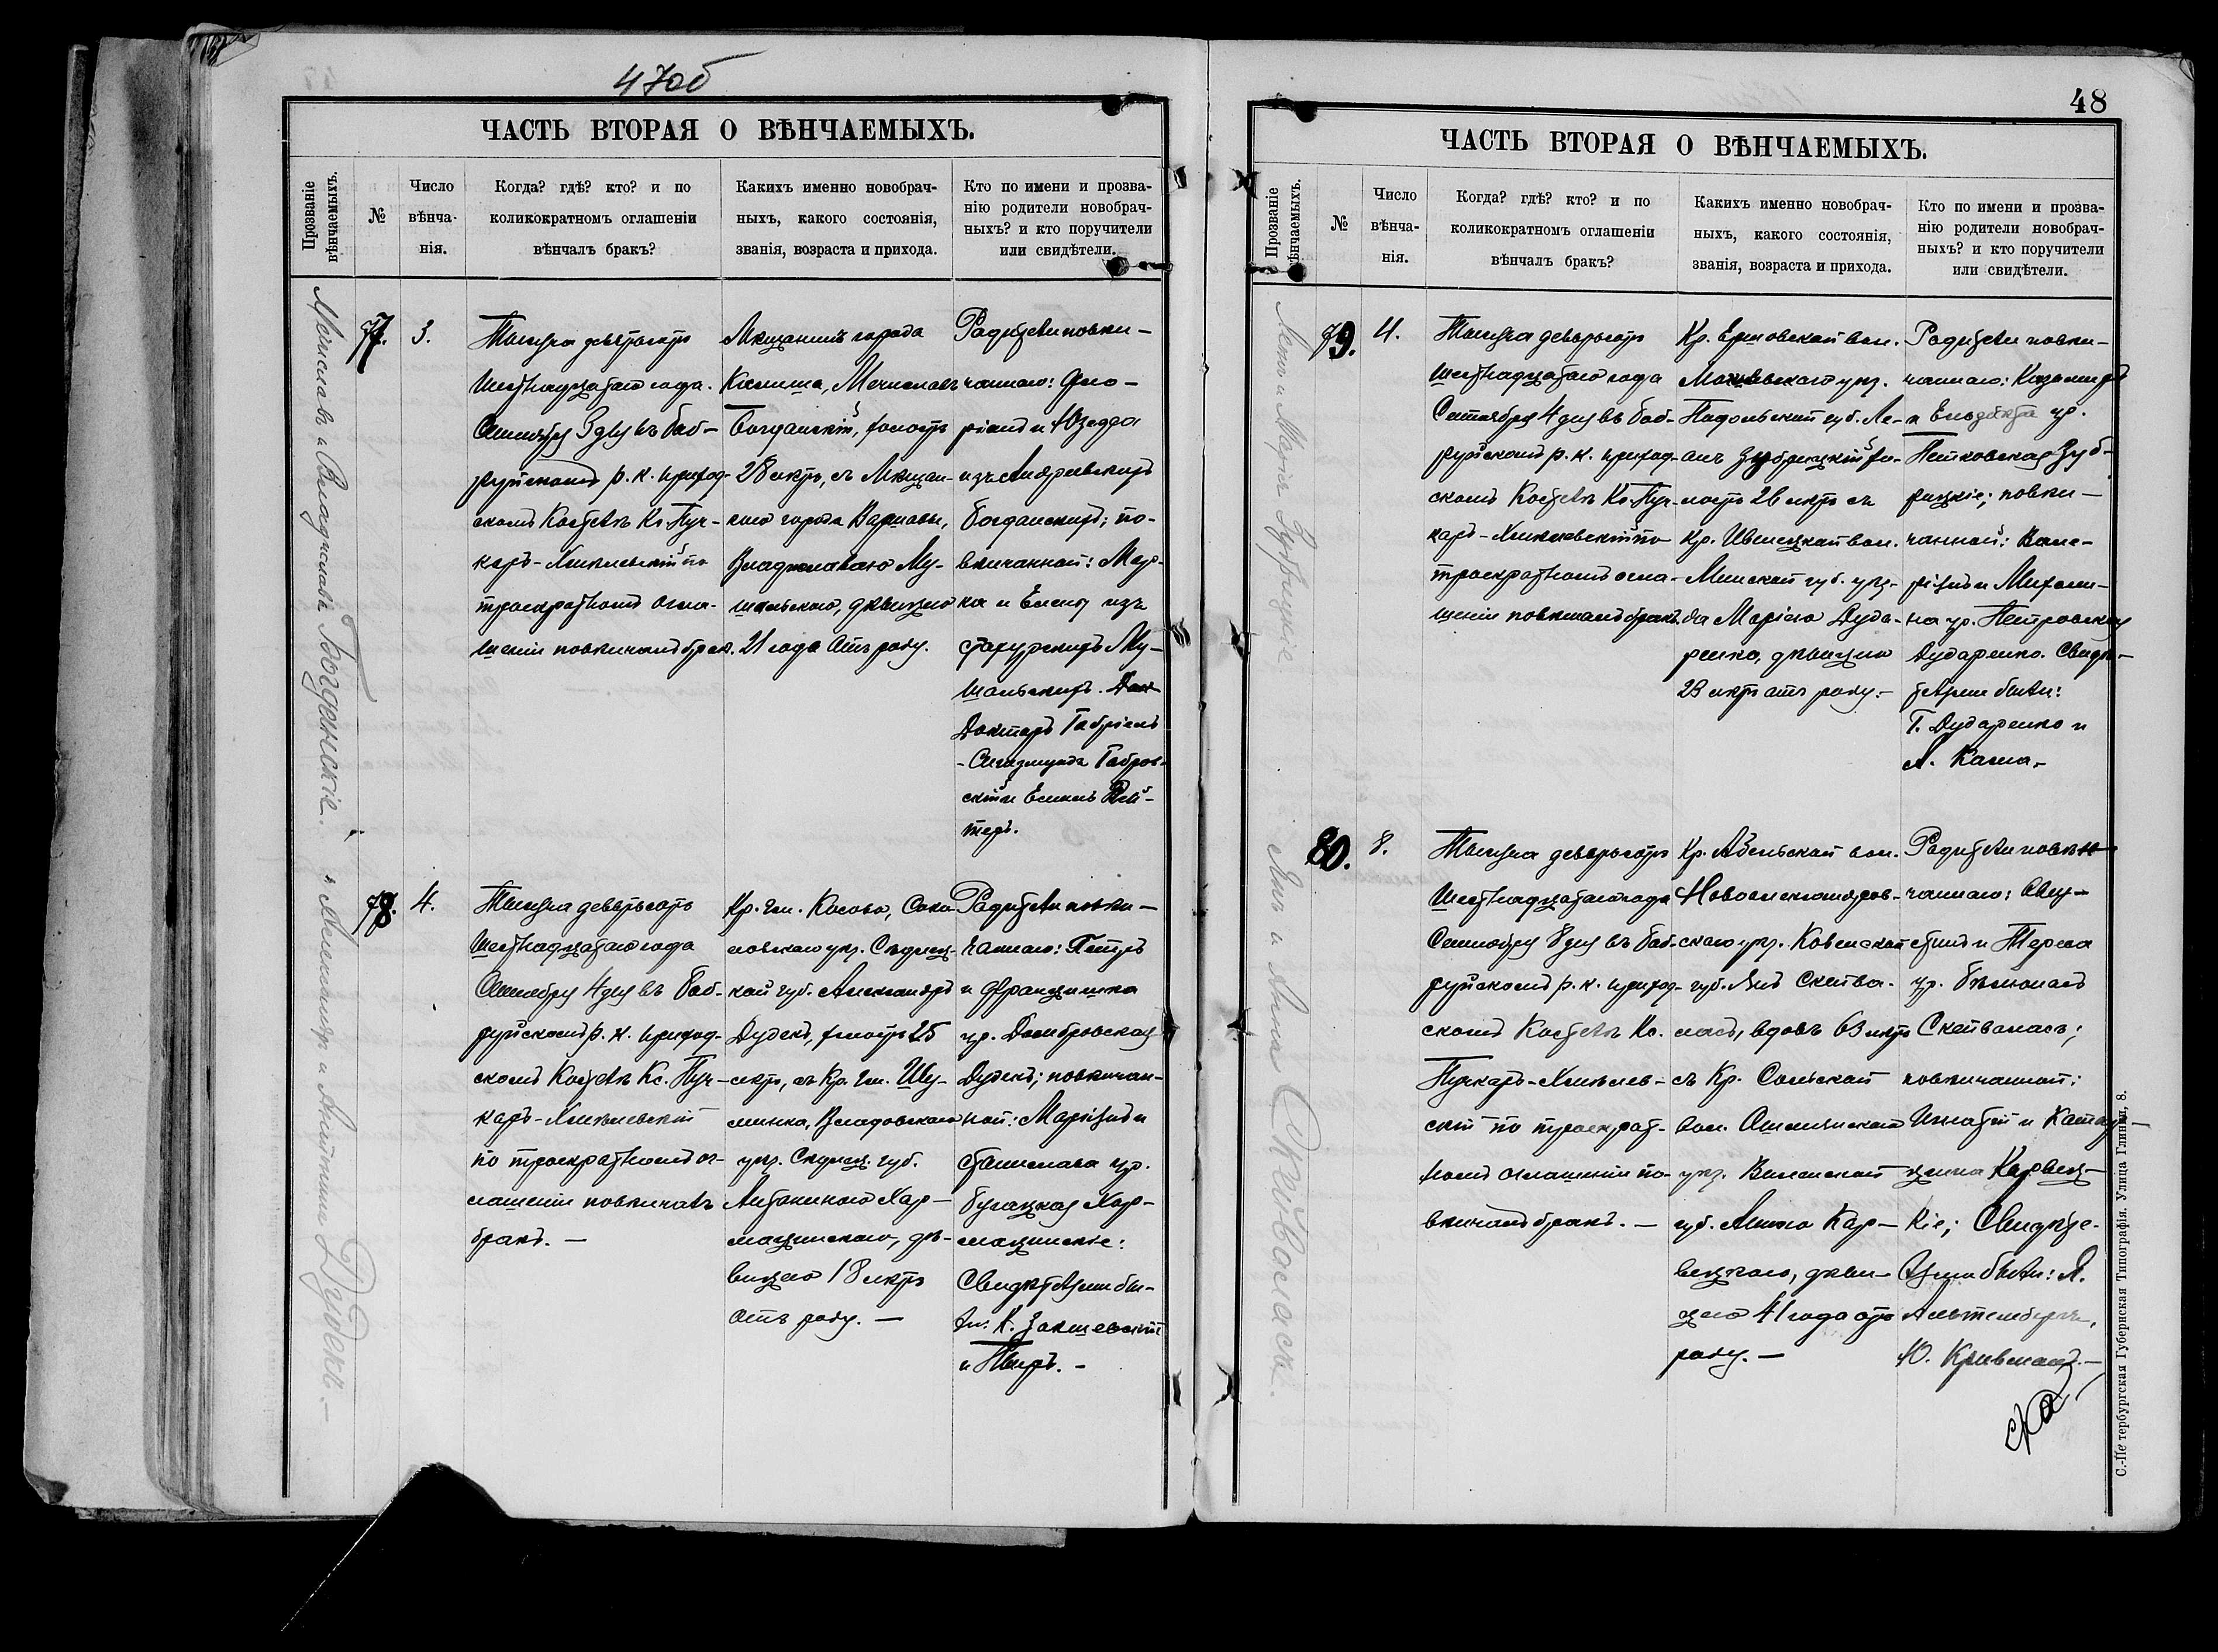 47 об
ЧАСТЬ ВТОРАЯ О ВѢНЧАЕМЫХЪ.
Прозваніе вѣнчаемыхъ.
№
Число
вѣнча-
нія.
Когда? гдѣ? кто? и по
коликократномъ оглашеніи
вѣнчалъ бракъ?
Какихъ именно новобрач-
ныхъ, какого состоянія,
званія, возраста и прихода.
Кто по имени и прозва-
нію родители новобрач-
ныхъ? и кто поручители
или свидѣтели.
Мечиславъ и Владислава Богданскіе.
77.
3.
Тысяча девятьсотъ
шестнадцатаго года
Сентября 3 дня въ Боб-
руйскомъ р. к. приход-
скомъ Костелѣ Кс. Пуч-
каръ-Хмелевскій по
троекратномъ огла-
шеніи повѣнчалъ бракъ.
Мѣщанинъ города
Калиша, Мечиславъ
Богданскій, холостъ
28 лѣтъ, съ Мѣщан-
кою города Варшавы,
Владиславою Му-
шальскою, дѣвицею
21 года отъ роду.
Родители повѣн-
чаннаго: Фло-
ріанъ и Юзефа
изъ Андреевскихъ
Богданскихъ; по-
вѣнчанной:
и Елены изъ
Му-
шальскихъ.
Докторъ Габріель
- Сигизмундъ Габров-
скій и Рей-
теръ.
Александръ и Антонина Дудекъ. -
78.
4.
Тысяча девятьсотъ
шестнадцатаго года
Сентября 4 дня въ Боб-
руйскомъ р. к. приход-
скомъ Костелѣ Кс. Пуч-
каръ-Хмелевскій
по троекратномъ ог-
лашеніи повѣнчалъ
бракъ. -
Кр. гм. Косова, Соко-
ловскаго уѣз. Сѣдлец-
кой губ. Александръ
Дудекъ, холостъ 25
лѣтъ, съ Кр. гм. Шу-
минка, Влодовскаго
уѣз. Сѣдлец. губ.
Антониною Хар-
мацинскою, дѣ-
вицею 18 лѣтъ
отъ роду. -
Родители повѣн-
чаннаго: Петръ
и Францишка
ур. Домбровская
Дудекъ; повѣнчан-
ной: Мартинъ и
Станислава ур.
Хар-
мацинскіе:
Свидѣтелями бы-
ли: К. Закшевскій
и -
48
ЧАСТЬ ВТОРАЯ О ВѢНЧАЕМЫХЪ.
Прозваніе вѣнчаемыхъ.
№
Число
вѣнча-
нія.
Когда? гдѣ? кто? и по
коликократномъ оглашеніи
вѣнчалъ бракъ?
Какихъ именно новобрач-
ныхъ, какого состоянія,
званія, возраста и прихода.
Кто по имени и прозва-
нію родители новобрач-
ныхъ? и кто поручители
или свидѣтели.
и Марія Зубрицкіе
79.
4.
Тысяча девятьсотъ
шестнадцатаго года
Сентября 4 дня въ Боб-
руйскомъ р. к. приход-
скомъ Костелѣ Кс. Пуч-
каръ-Хмелевскій по
троекратномъ огла-
шеніи повѣнчалъ бракъ.
Кр. вол.
уѣз.
Подольской губ.
Зубрицкій хо-
лостъ 26 лѣтъ съ
Кр. Ивенецкой вол.
Минской губ. уѣз-
да Маріею Дуда-
ренко, дѣвицею
23 лѣтъ отъ роду. -
Родители повѣн-
чаннаго: Казиміръ
и ур.
Петковская Зуб-
рицкіе; повѣн-
чанной: Вале-
ріянъ и Михали-
на ур. Петровская
Дударенко. Свидѣ-
телями были:
Г. Дударенко и
А. -
Янъ и Анна Скейваласъ.
80.
8.
Тысяча девятьсотъ
шестнадцатаго года
Сентября 8 дня въ Боб-
руйскомъ р. к. приход-
скомъ Костелѣ Кс.
Пучкаръ-Хмелев-
скій по троекрат-
номъ оглашеніи по-
вѣнчалъ бракъ. -
Кр. Абельской вол.
Новоалександров-
скаго уѣз. Ковенской
губ. Янъ Скейва-
ласъ, вдовъ 63 лѣтъ
съ Кр. Сольской
вол. Ошмянскаго
уѣз. Виленской
губ. Анною Кар-
вецкою, дѣви-
цею 41 года отъ
роду. -
Родители повѣн-
чаннаго: Авгу-
стинъ и Тереза
ур.
Скейваласъ;
повѣнчанной:
Игнатій и Ката-
Карвец-
кіе; Свидѣте-
лями были: А.
Ю. -
С.-Петербургская Губернская Типографія. Улица Глинки, 8.